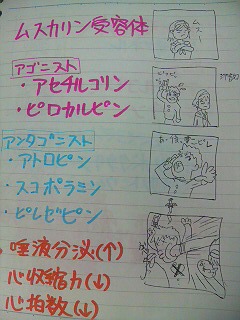 ムスカリン受容体
ムス〜
アゴニスト
・アセチルコリン
・ピロカルピン
アンタゴニスト
・アトロピン
・スコポラミン
・ピレゼピン
・唾液分泌(↑)
心収縮力(↓)
心拍数(↓)